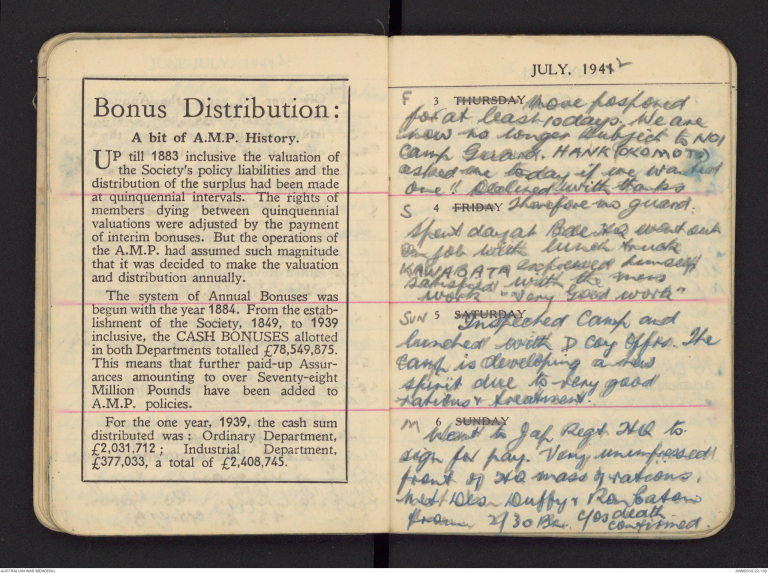 Bonus Distribution:
A bit of A.M.P. History.
UP till 1883 inclusive the valuation of
the Society's policy liabilities and the
distribution of the surplus had been made
at quinquennial intervals. The rights of
members dying between quinquennial
valuations were adjusted by the payment
of interim bonuses. But the operations of
the A.M.P. had assumed such magnitude
that it was decided to make the valuation
and distribution annually.
The system of Annual Bonuses was
begun with the year 1884. From the estab-
lishment of the Society, 1849, to 1939
inclusive, the CASH BONUSES allotted
in both Departments totalled £78,549,875.
This means that further paid-up Assur-
ances amounting to over Seventy-eight
Million Pounds have been added to
A.M.P. policies.
For the one year, 1939, the cash sum
distributed was: Ordinary Department,
£2,031,712; Industrial Department,
£377,033, a total of £2,408,745.
JULY, 1941 2
F 3 THURSDAY Move postponed
for at least 10 days. We are
now no longer subject to No1
Camp Guard. HANK (OKOMOTO)
asked me today if we wanted
one!! Declined with thanks
S 4 FRIDAY Therefore no guard.
Spent day at Bde HQ went out
on job with lunch truck
KAWABATA expressed himself
satisfied with the mens
work "Very Good work"
SUN 5 SATURDAY
Inspected Camp and
lunched with D Coy Offrs. The
Camp is developing a new
spirit due to very good
rations & treatment.
M 6 SUNDAY
Went to Jap Regt HQ to
sign for pay. Very unimpressed
front of HQ mass of rations.
Met Des Duffy & Ron Eaton
from 2/30 Bn. C/Os death
confirmed.
AUSTRALIAN WAR MEMORIAL